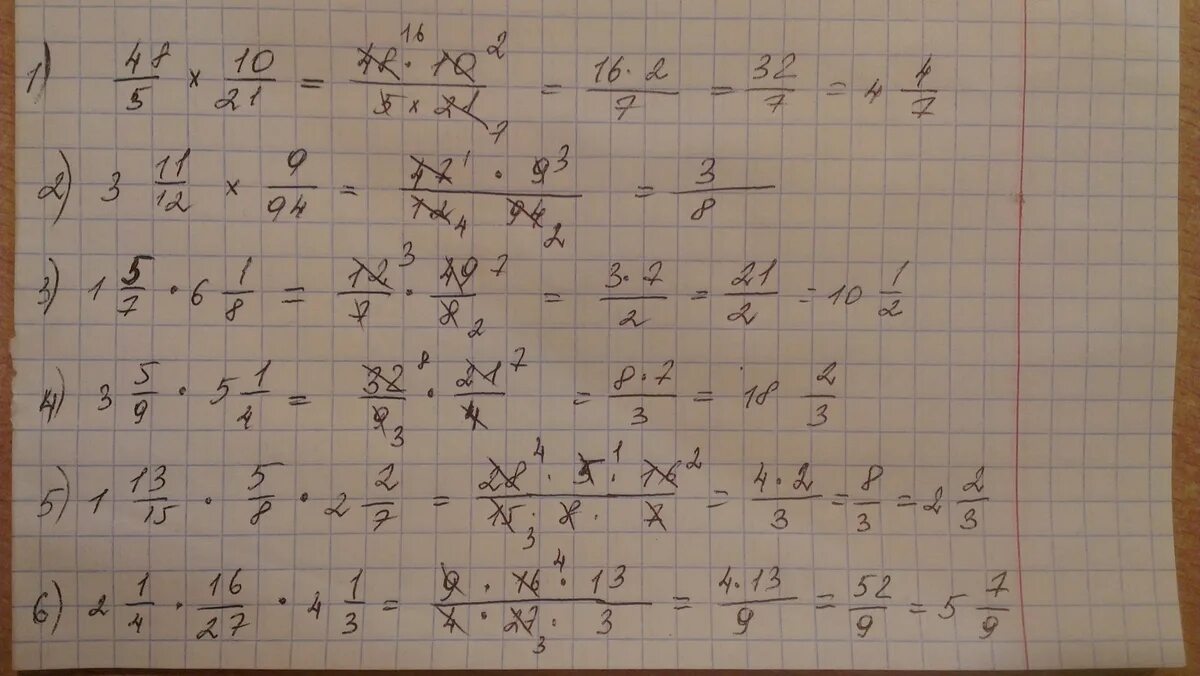 1) 48/5 × 10/21 = 48 16 · 10 2 / 5 × 21 7 = 16·2/7 = 32/7 = 4 4/7
2) 3 11/12 × 9/94 = 47 1 · 9 3 / 12 4 94 2 = 3/8
3) 1 5/7 · 6 1/8 = 12 3/7 · 49 7/8 2 = 3·7/2 = 21/2 = 10 1/2
4) 3 5/9 · 5 1/4 = 32 8/9 3 · 21 7/4 = 8·7/3 = 18 2/3
5) 1 13/15 · 5/8 · 2 2/7 = 28 4 · 5 1 · 16 2 / 15 3 · 8 · 7 = 4·2/3 = 8/3 = 2 2/3
6) 2 1/4 · 16/27 · 4 1/3 = 9 · 16 4 · 13 / 4 · 27 3 · 3 = 4·13/9 = 52/9 = 5 7/9